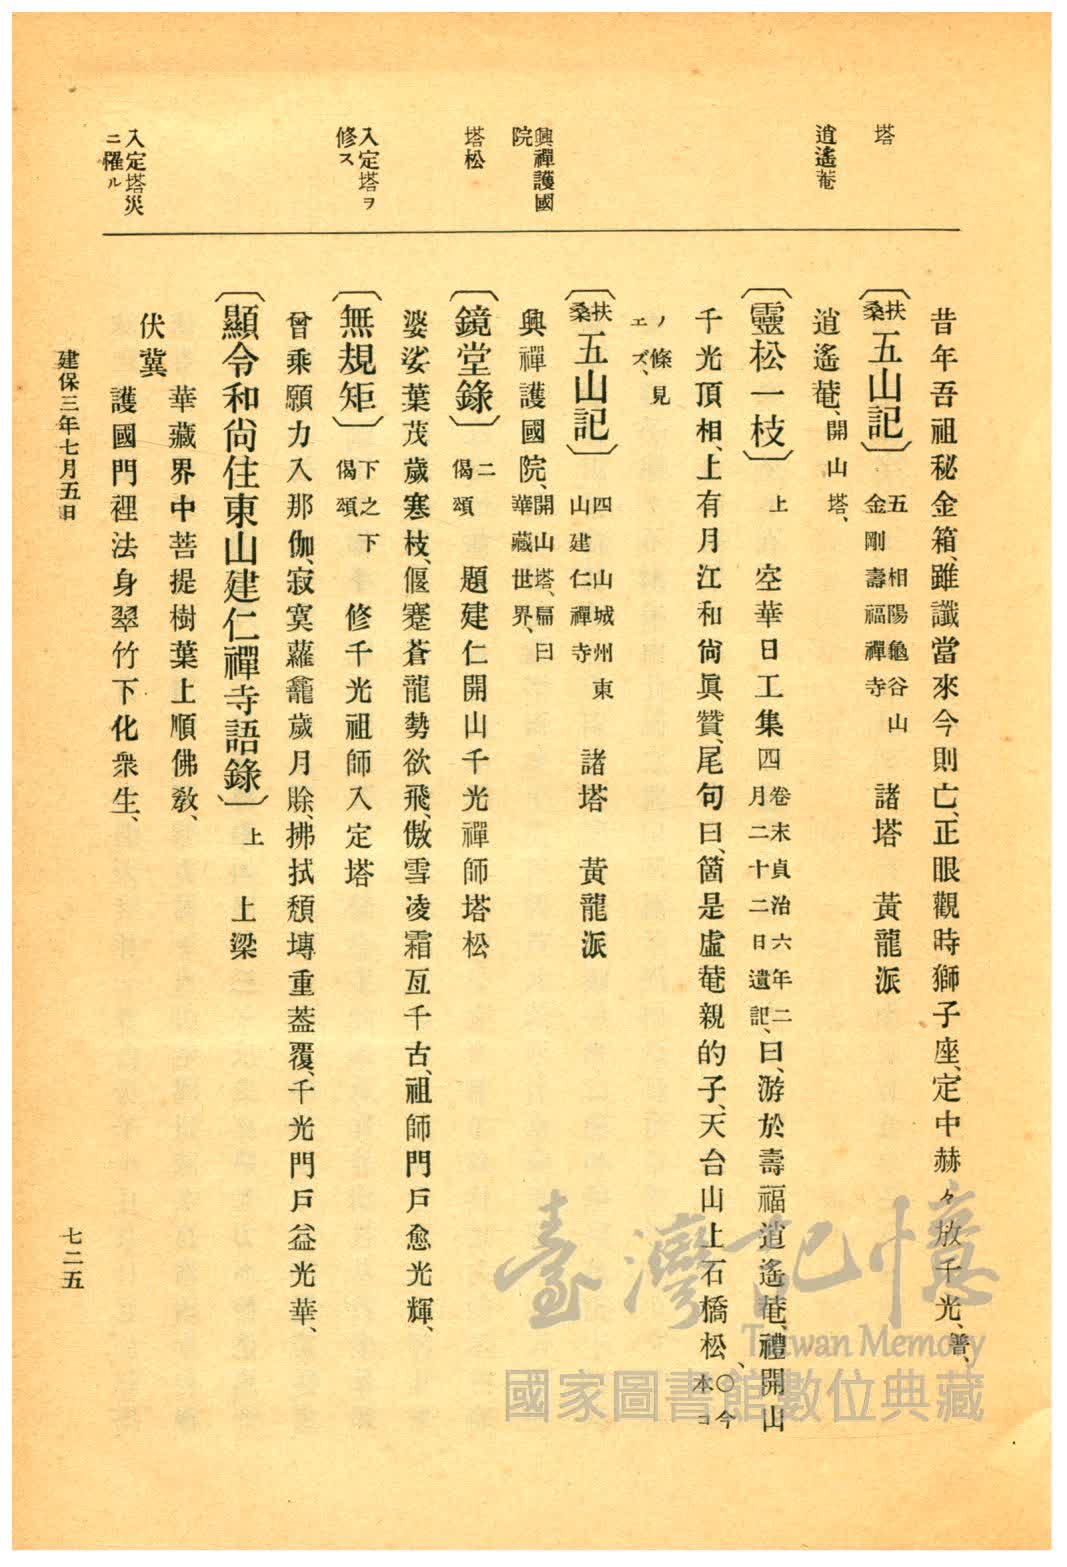 塔
逍遙菴
興禪護國
院
塔松
入定塔ヲ
修ス
入定塔災
ニ罹ル
昔年吾祖秘金箱、雖讖當來今則亡、正眼觀時獅子座、定中赫々放千光、普、
〔扶桑五山記〕五 相陽龜谷山金剛壽福禪寺 諸塔 黃龍派
逍遙菴、開山塔、
〔靈松一枝〕上 空華日工集四卷末貞治六年二月二十二日遺記、曰、游於壽福逍遙菴、禮開山
千光頂相、上有月江和尙眞贊、尾句曰、箇是虛菴親的子、天台山上石橋松、○今本コ
ノ條見
エズ、
〔扶桑五山記〕四 山城州東山建仁禪寺 諸塔 黃龍派
興禪護國院、開山塔、扁曰華藏世界、
〔鏡堂錄〕二偈頌 題建仁開山千光禪師塔松
婆娑葉茂歲寒枝、偃蹇蒼龍勢欲飛、傲雪凌霜亙千古、祖師門戶愈光輝、
〔無規矩〕下之下偈頌 修千光祖師入定塔
曾乘願力入那伽、寂寞蘿龕歲月賒、拂拭頽塼重葢覆、千光門戶益光華、
〔顯令和尙住東山建仁禪寺語錄〕上 上梁
華藏界中菩提樹葉上順佛敎、
伏冀
護國門裡法身翠竹下化衆生、
建保三年七月五日
七二五
臺灣記憶
Taiwan Memory
國家圖書館數位典藏